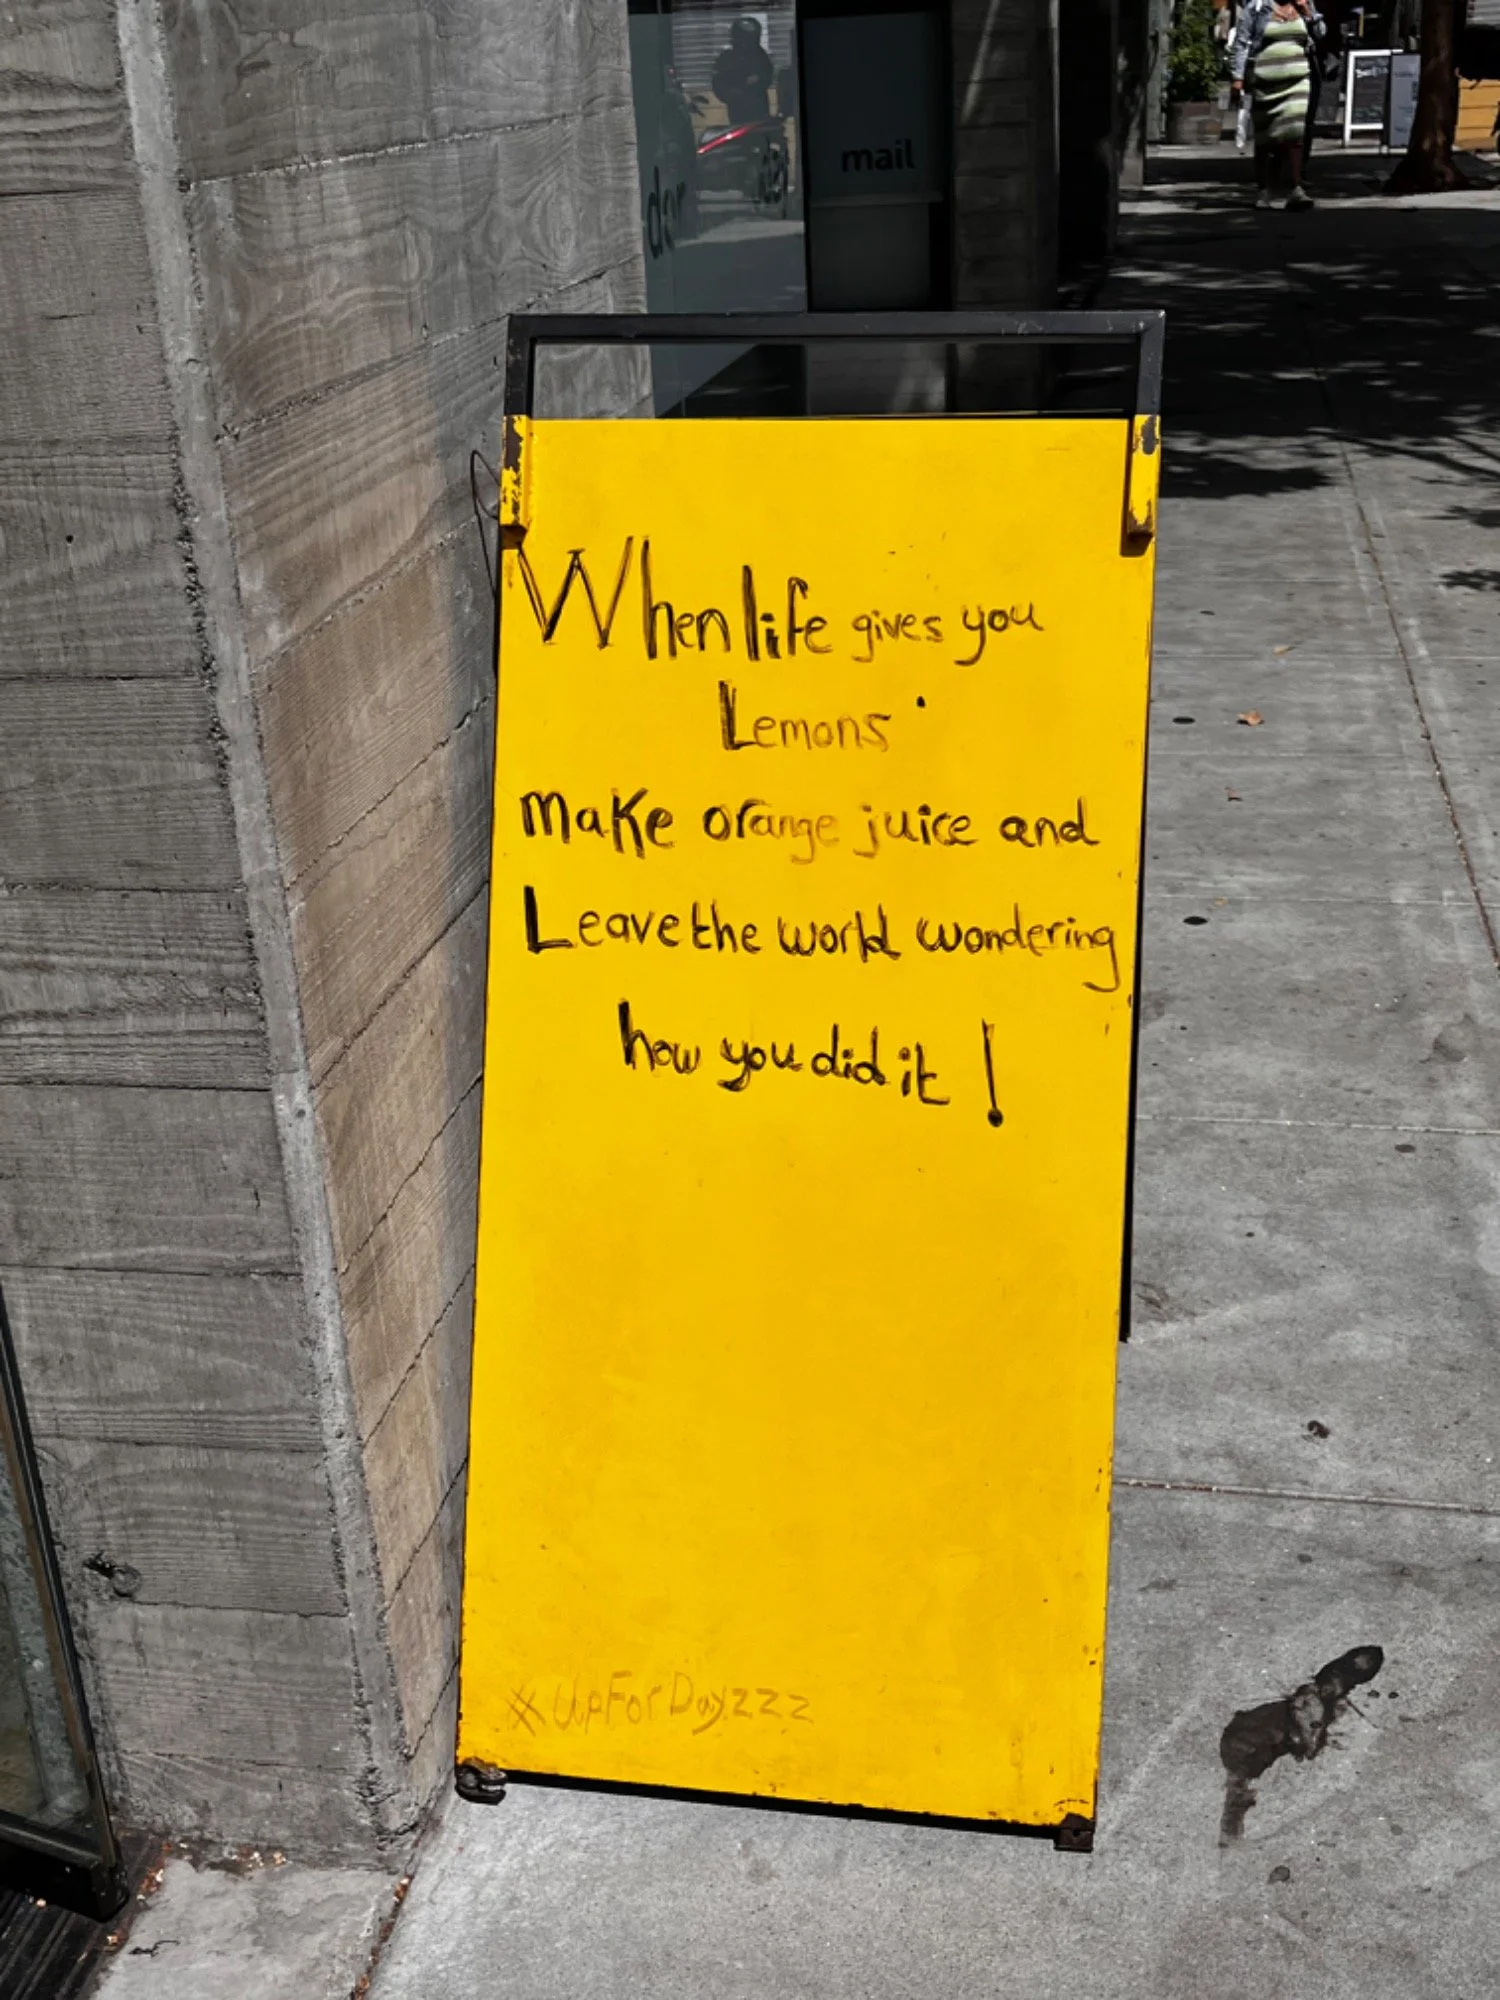 mail
When life gives you
Lemons
make orange juice and
Leave the world wondering
how you did it !
#UpForDayzzz